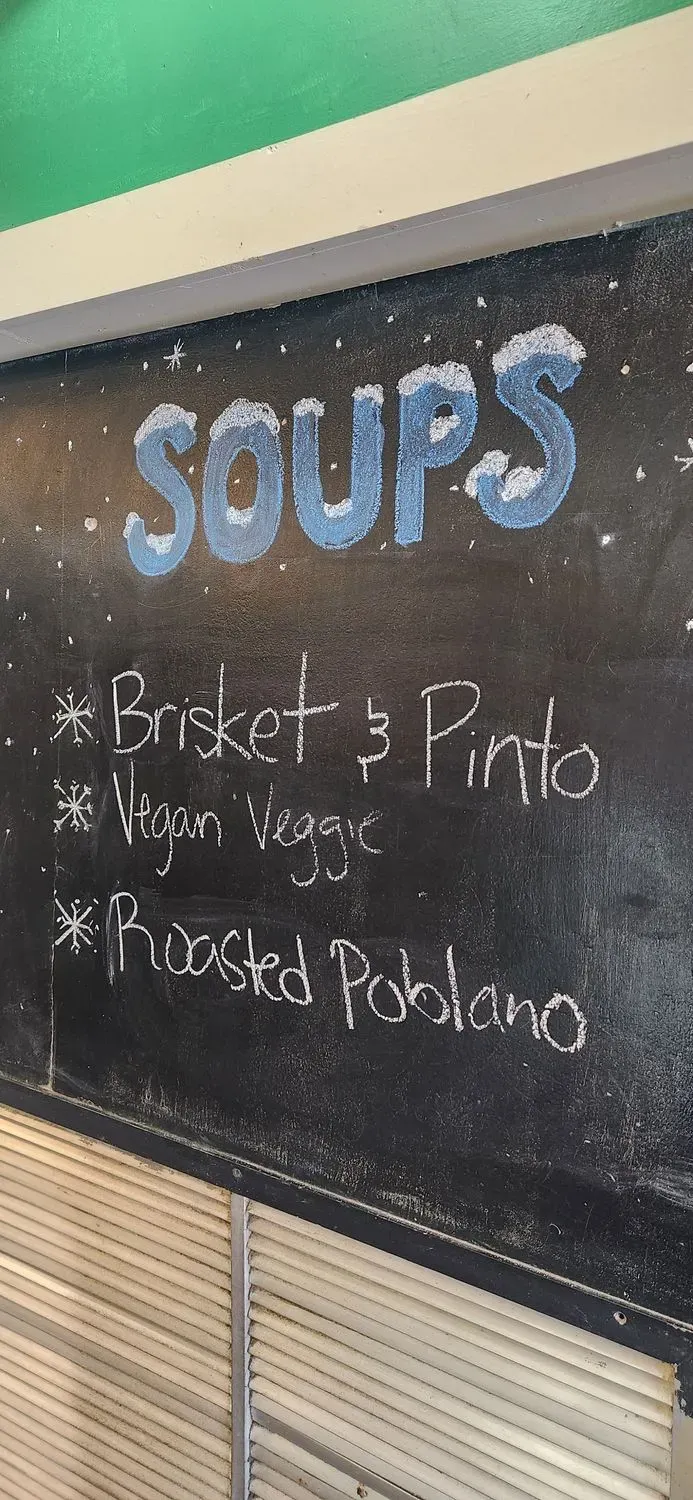 SOUPS
Brisket & Pinto
Vegan Veggie
Roasted Poblano